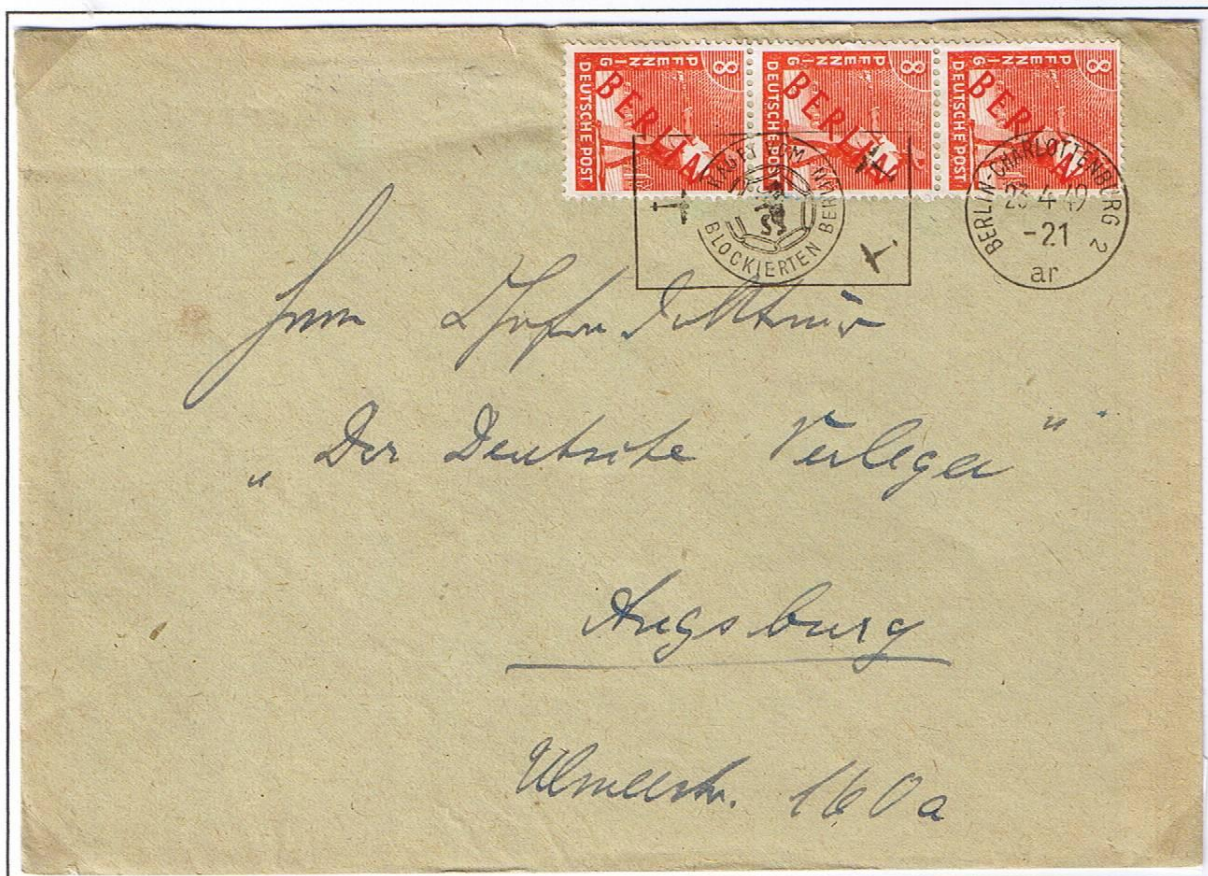 8 PFENNIG DEUTSCHE POST BERLIN
8 PFENNIG DEUTSCHE POST BERLIN
8 PFENNIG DEUTSCHE POST BERLIN
BLOCKIERTEN BERLIN
BERLIN-CHARLOTTENBURG 2
23.4.49
-21
ar
Herrn
„Der Deutsche Verleger“
Augsburg
Ulmerstr. 160a